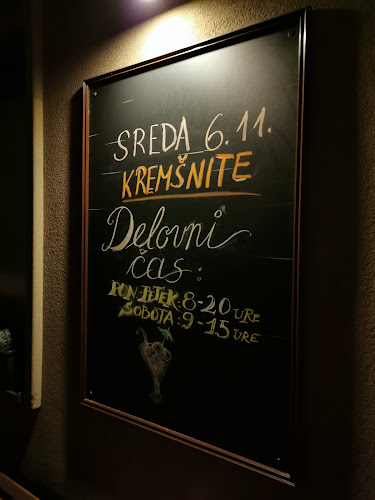 SREDA 6.11.
KREMŠNITE
Delovni
čas:
PON-PETEK: 8-20 URE
SOBOTA: 9-15 URE